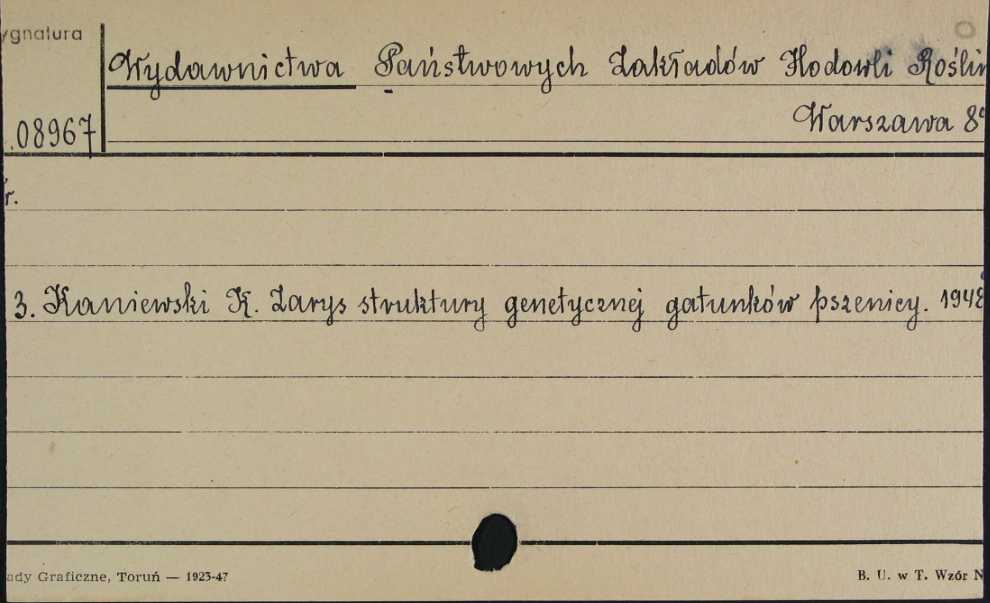 ygnatura
Wydawnictwa Państwowych Zakładów Hodowli Roślin
08967
Warszawa 8°
r.
3. Kaniewski K. Zarys struktury genetycznej gatunków pszenicy. 1948
ady Graficzne, Toruń — 1923-47
B. U. w T. Wzór N